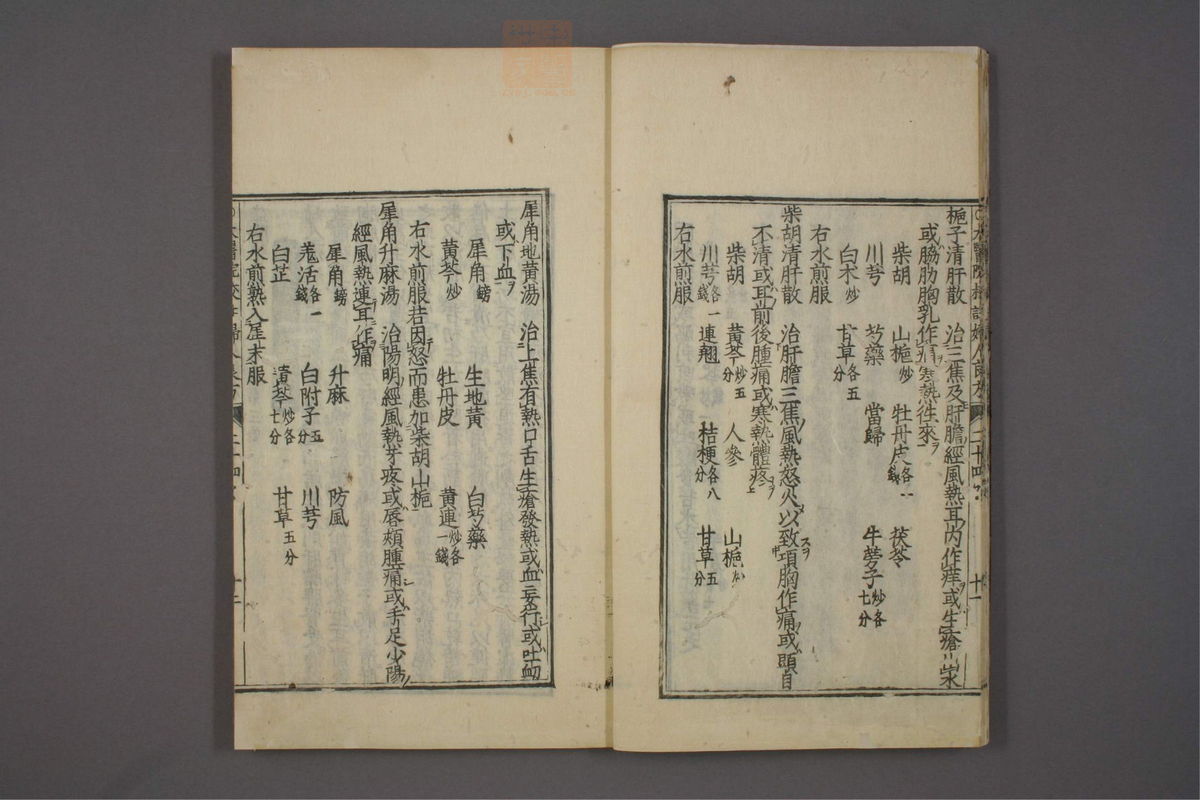 梔子清肝散　治三焦及肝膽經風熱耳内作痒或生瘡出水
或脇肋胸乳作痛寒熱往來
柴胡　山梔炒　牡丹皮各一錢　茯苓
川芎　芍藥　當歸　牛蒡子炒各七分
白朮炒　甘草各五分
右水煎服
柴胡清肝散　治肝膽三焦風熱怒火以致項胸作痛或頭目
不清或耳前後腫痛或寒熱體疼
柴胡　黄芩炒五分　人參　山梔炒
川芎各一錢　連翹　桔梗各八分　甘草五分
右水煎服
十一
犀角地黄湯　治上焦有熱口舌生瘡發熱或血妄行或吐衂
或下血
犀角鎊　生地黄　白芍藥
黄芩炒　牡丹皮　黄連炒各一錢
右水煎服若因怒而患加柴胡山梔
犀角升麻湯　治陽明經風熱牙疼或唇頰腫痛或手足少陽
經風熱連耳作痛
犀角鎊　升麻　防風
羗活各一錢　白附子五分　川芎
白芷　黄芩炒各七分　甘草五分
右水煎熟入犀末服